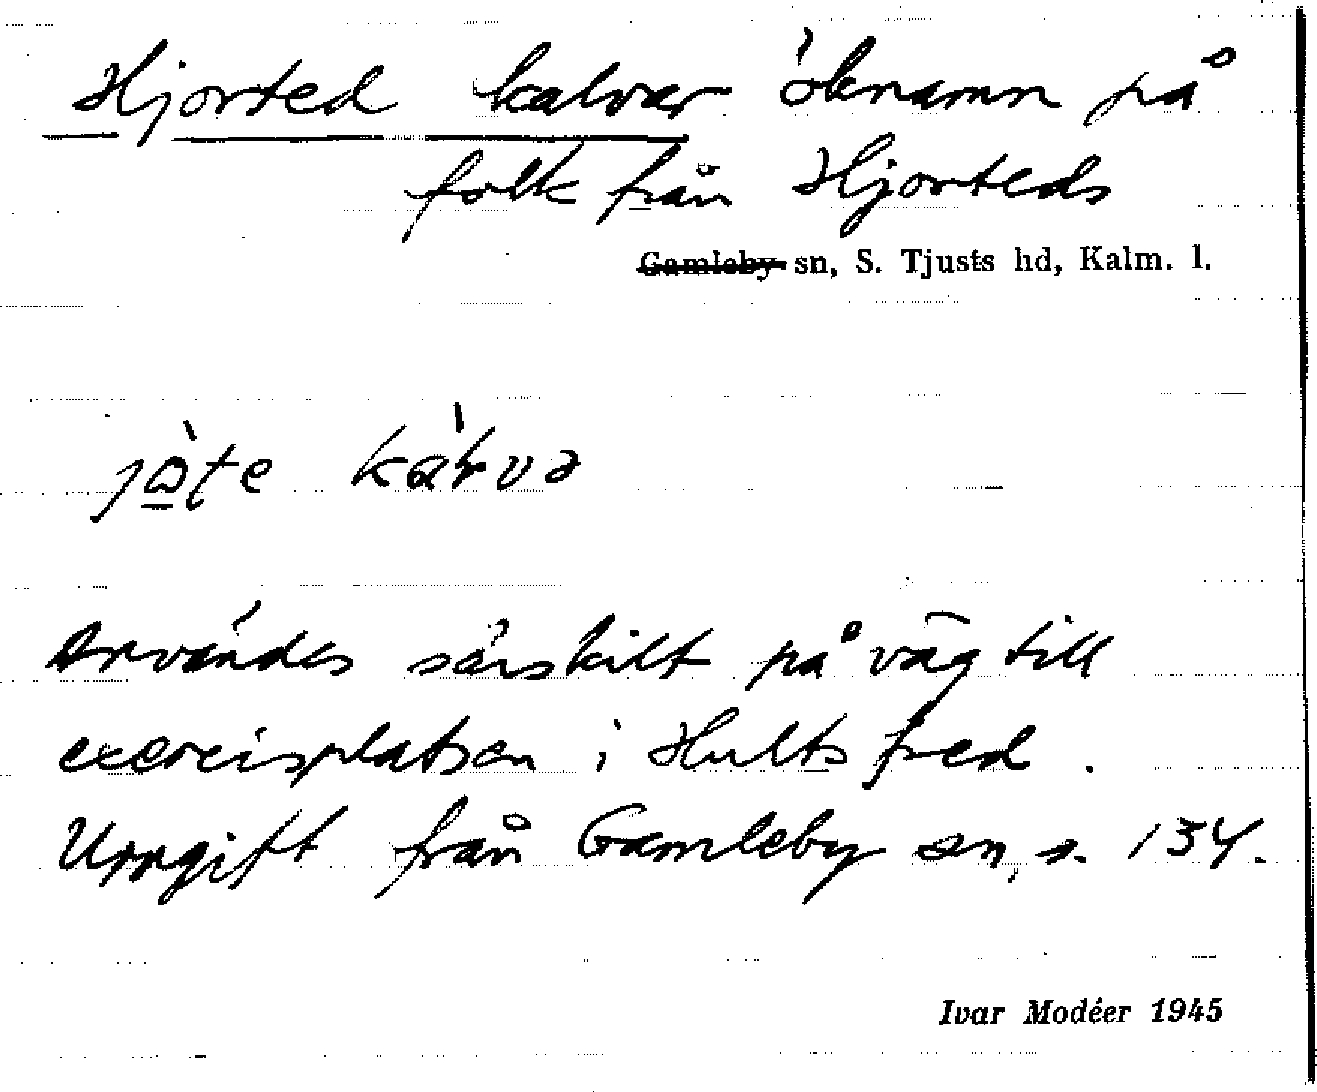 Hjorted kalvar öknamn på
folk från Hjorteds
Gamleby sn, S. Tjusts hd, Kalm. l.
Användes särskilt på väg till
exercisplatsen i Hultsfred.
Uppgift från Gamleby sn, s. 134.
Ivar Modéer 1945